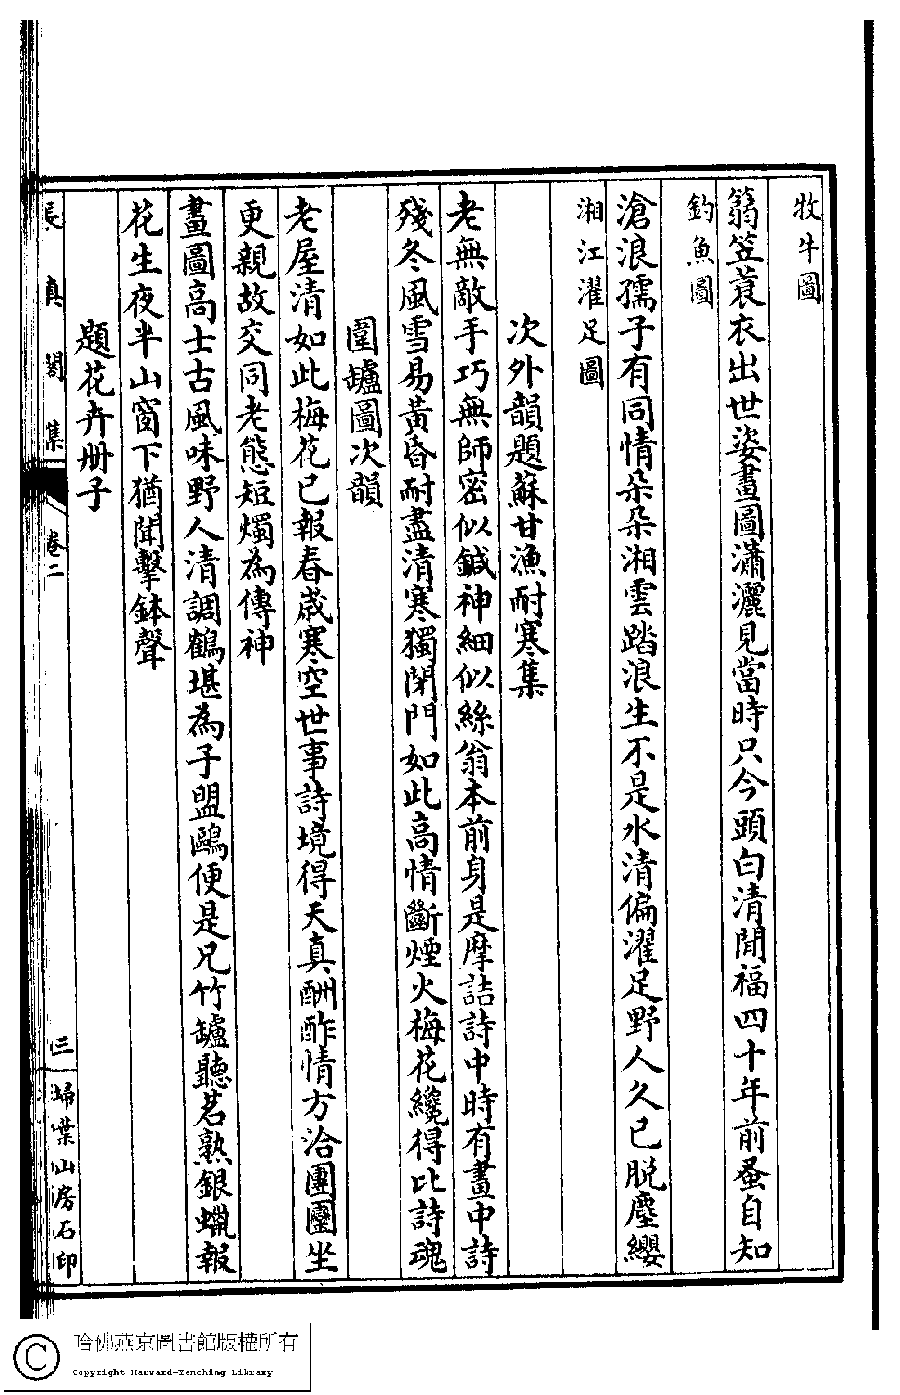 牧牛圖
篛笠蓑衣出世姿畫圖瀟灑見當時只今頭白清閒福四十年前蚤自知
釣魚圖
滄浪孺子有同情朵朵湘雲踏浪生不是水清偏濯足野人久已脫塵纓
湘江濯足圖
次外韻題蘇甘漁耐寒集
老無敵手巧無師密似鍼神細似絲翁本前身是摩詰詩中時有畫中詩
殘冬風雪易黃昏耐盡清寒獨閉門如此高情斷煙火梅花纔得比詩魂
圍罏圖次韻
老屋清如此梅花已報春歲寒空世事詩境得天真酬酢情方洽團圞坐
更親故交同老態短燭為傳神
畫圖高士古風味野人清調鶴堪為子盟鷗便是兄竹罏聽茗熟銀蠟報
花生夜半山窗下猶聞擊鉢聲
題花卉册子
長真閣集
卷二
三
埽葉山房石印
哈佛燕京圖書館版權所有
Copyright Harvard-Yenching Library